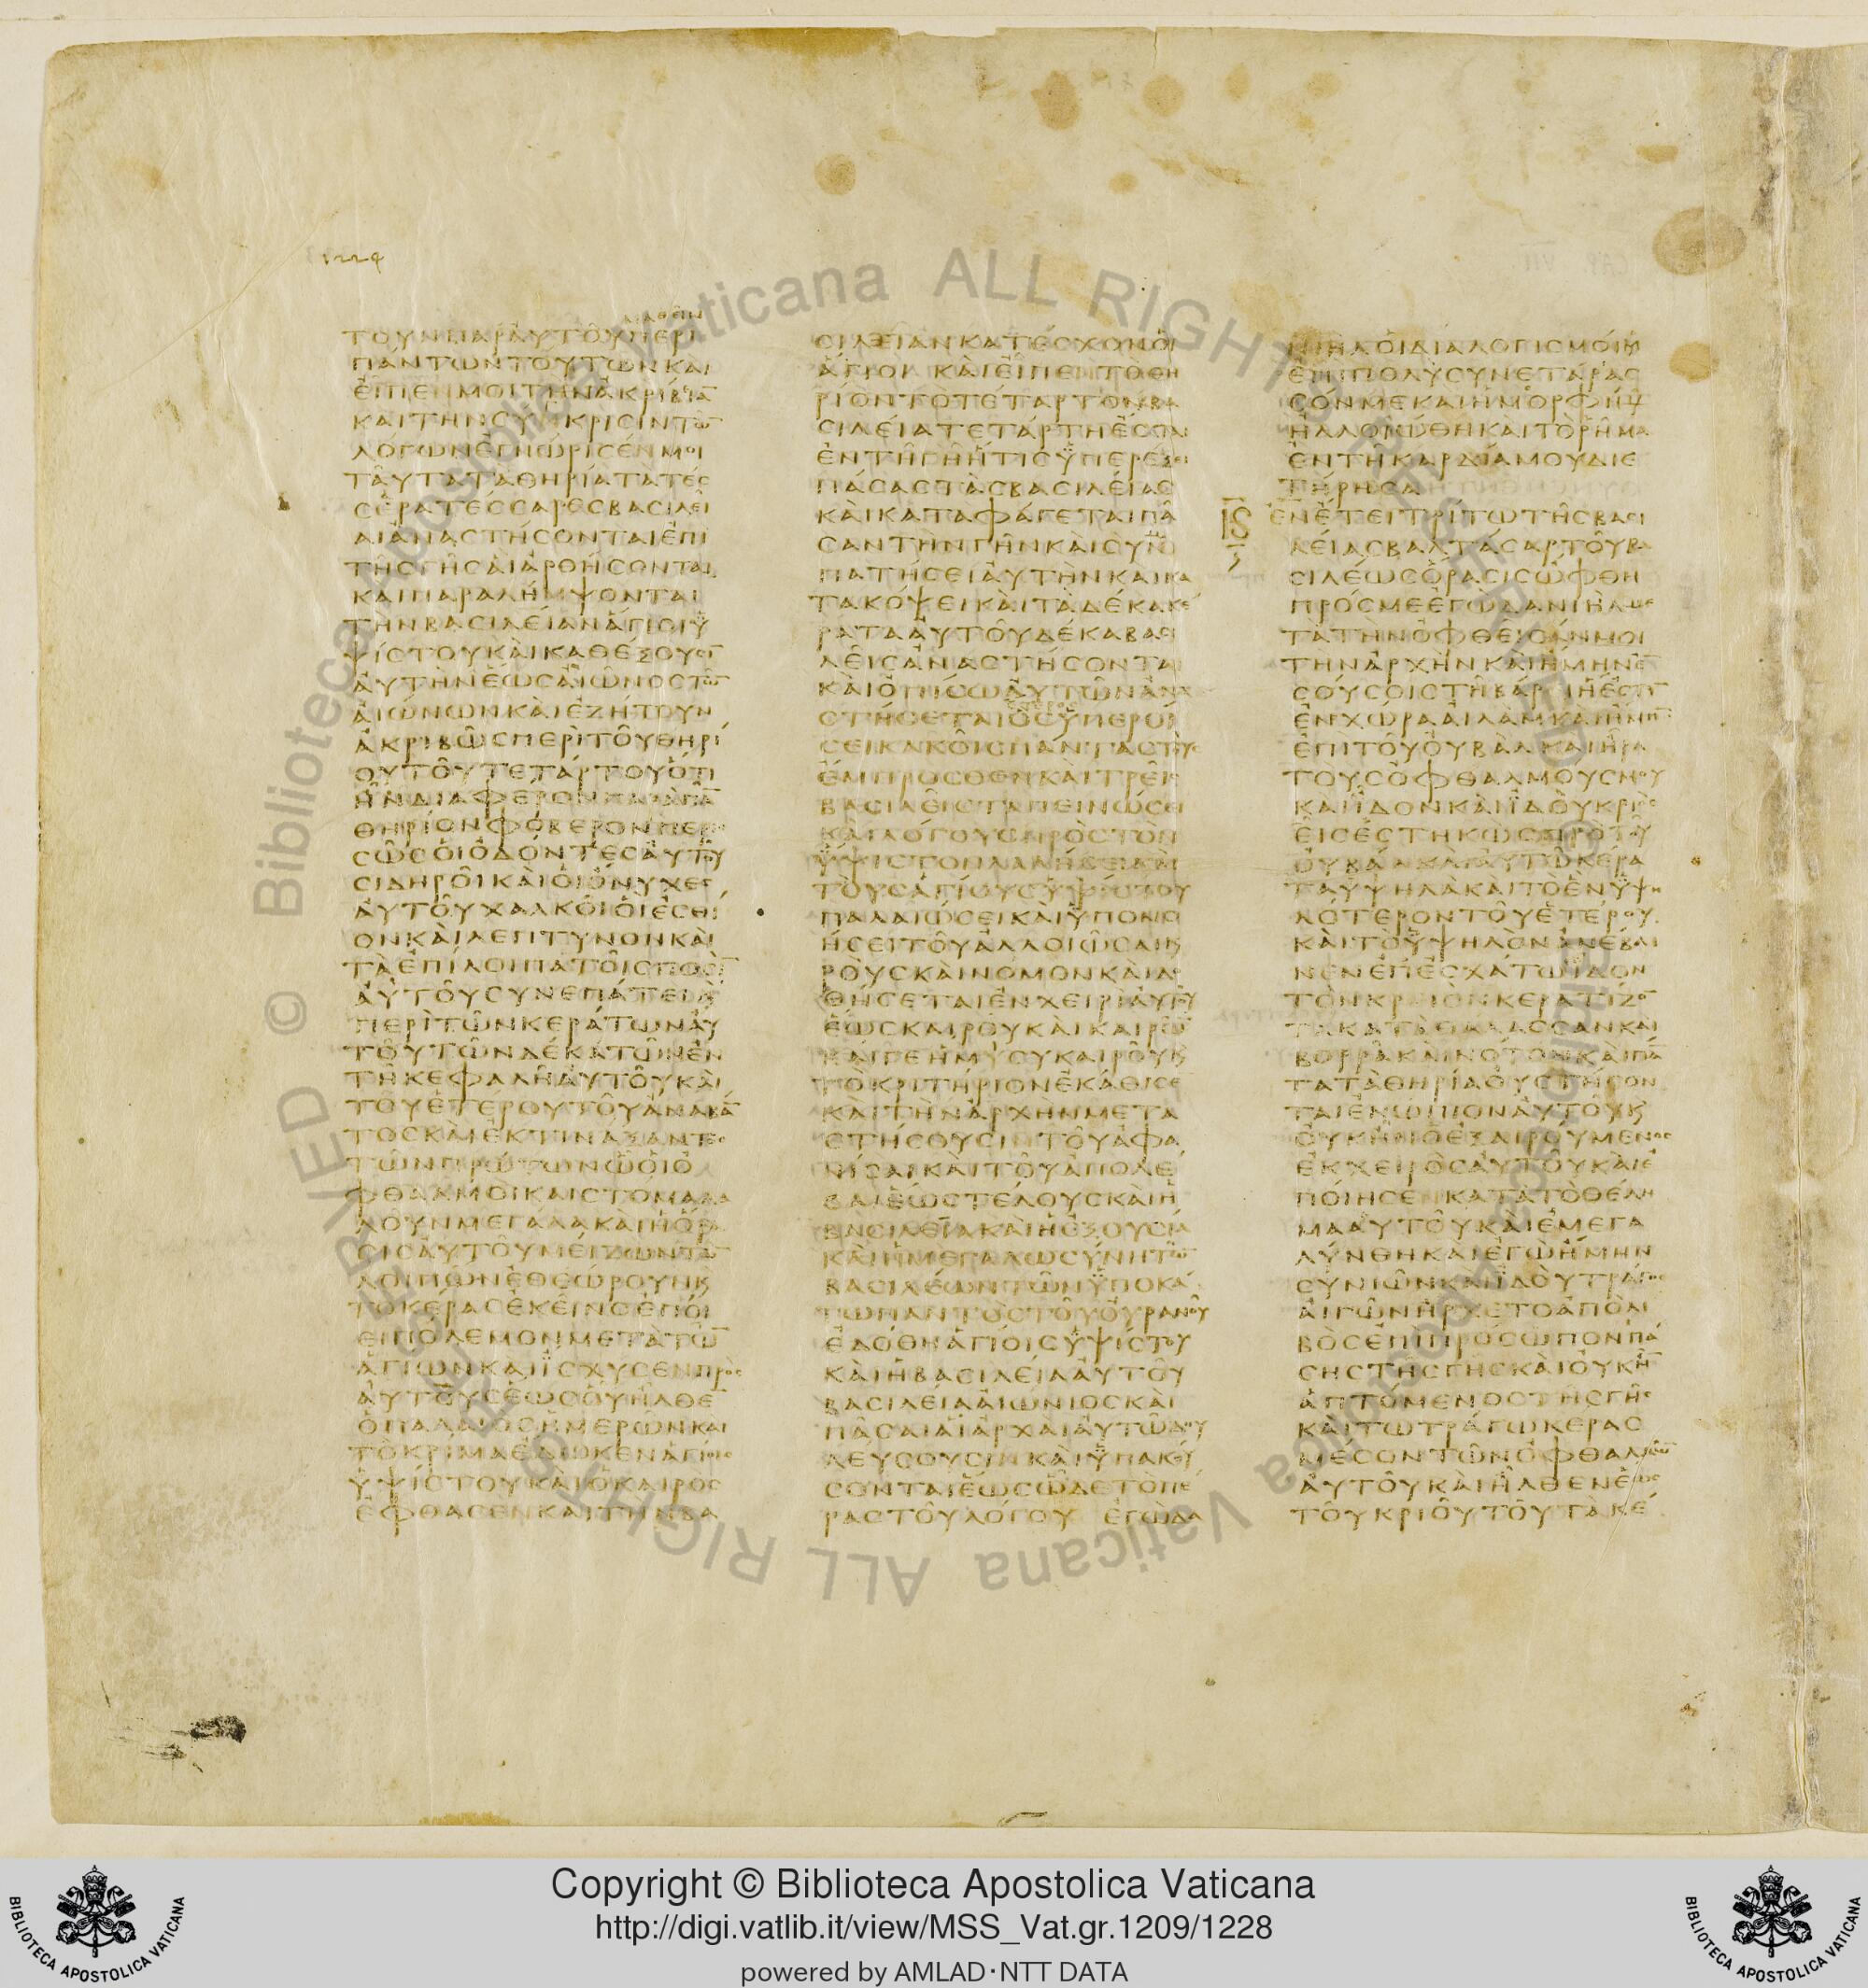 1224
μαθεῖν
ΤΟΥΝΠΑΡΑΥΤΟΥΠΕΡΙ
ΠΑΝΤΩΝΤΟΥΤΩΝΚΑΙ
ΕΙΠΕΝΜΟΙΤΗΝΑΚΡΙΒΙΑ̅
ΚΑΙΤΗΝΣΥΝΚΡΙΣΙΝΤΩ̅
ΛΟΓΩΝΕΓΝΩΡΙΣΕΝΜΟΙ
ΤΑΥΤΑΤΑΘΗΡΙΑΤΑΤΕΣ
ΣΕΡΑΤΕΣΣΑΡΕΣΒΑΣΙΛΕΙ
ΑΙΑΝΑΣΤΗΣΟΝΤΑΙΕΠΙ
ΤΗΣΓΗΣΑΙΑΡΘΗΣΟΝΤΑΙ
ΚΑΙΠΑΡΑΛΗΜΨΟΝΤΑΙ
ΤΗΝΒΑΣΙΛΕΙΑΝΑΓΙΟΙΥ
ΨΙΣΤΟΥΚΑΙΚΑΘΕΞΟΥΣΙ̅
ΑΥΤΗΝΕΩΣΑΙΩΝΟΣΤΩ̅
ΑΙΩΝΩΝΚΑΙΕΖΗΤΟΥΝ
ΑΚΡΙΒΩΣΠΕΡΙΤΟΥΘΗΡΙ
ΟΥΤΟΥΤΕΤΑΡΤΟΥΟΤΙ
ΗΝΔΙΑΦΕΡΟΝΠΑΡΑΠΑ̅
ΘΗΡΙΟΝΦΟΒΕΡΟΝΠΕΡΙΣ
ΣΩΣΟΙΟΔΟΝΤΕΣΑΥΤΟΥ
ΣΙΔΗΡΟΙΚΑΙΟΙΟΝΥΧΕΣ
ΑΥΤΟΥΧΑΛΚΟΙΟΙΕΣΘΙ
ΟΝΚΑΙΛΕΠΤΥΝΟΝΚΑΙ
ΤΑΕΠΙΛΟΙΠΑΤΟΙΣΠΟΣΙ̅
ΑΥΤΟΥΣΥΝΕΠΑΤΕΙϏ
ΠΕΡΙΤΩΝΚΕΡΑΤΩΝΑΥ
ΤΟΥΤΩΝΔΕΚΑΤΩΝΕΝ
ΤΗΚΕΦΑΛΗΑΥΤΟΥΚΑΙ
ΤΟΥΕΤΕΡΟΥΤΟΥΑΝΑΒΑ̅
ΤΟΣΚΑΙΕΚΤΙΝΑΞΑΝΤΟΣ
ΤΩΝΠΡΩΤΩΝΩΟΙΟ
ΦΘΑΛΜΟΙΚΑΙΣΤΟΜΑΛΑ
ΛΟΥΝΜΕΓΑΛΑΚΑΙΗΟΡΑ
ΣΙΣΑΥΤΟΥΜΕΙΖΩΝΤΩ̅
ΛΟΙΠΩΝΕΘΕΩΡΟΥΝϏ
ΤΟΚΕΡΑΣΕΚΕΙΝΟΕΠΟΙ
ΕΙΠΟΛΕΜΟΝΜΕΤΑΤΩ̅
ΑΓΙΩΝΚΑΙΙΣΧΥΣΕΝΠΡΟΣ
ΑΥΤΟΥΣΕΩΣΟΥΗΛΘΕ̅
ΟΠΑΛΑΙΟΣΗΜΕΡΩΝΚΑΙ
ΤΟΚΡΙΜΑΕΔΩΚΕΝΑΓΙΟΙΣ
ΥΨΙΣΤΟΥΚΑΙΟΚΑΙΡΟΣ
ΕΦΘΑΣΕΝΚΑΙΤΗΝΒΑ
ΣΙΛΕΙΑΝΚΑΤΕΣΧΟΝΟΙ
ΑΓΙΟΙ ΚΑΙΕΙΠΕΝΤΟΘΗ
ΡΙΟΝΤΟΤΕΤΑΡΤΟΝΒΑ
ΣΙΛΕΙΑΤΕΤΑΡΤΗΕΣΤΑΙ
ΕΝΤΗΓΗΗΤΙΣΥΠΕΡΕΞΕΙ
ΠΑΣΑΣΤΑΣΒΑΣΙΛΕΙΑΣ
ΚΑΙΚΑΤΑΦΑΓΕΤΑΙΠΑ
ΣΑΝΤΗΝΓΗΝΚΑΙΣΥΝ
ΠΑΤΗΣΕΙΑΥΤΗΝΚΑΙΚΑ
ΤΑΚΟΨΕΙΚΑΙΤΑΔΕΚΑΚΕ
ΡΑΤΑΑΥΤΟΥΔΕΚΑΒΑΣΙ
ΛΕΙΣΑΝΑΣΤΗΣΟΝΤΑΙ
ΚΑΙΟΠΙΣΩΑΥΤΩΝΑΝΑ
ΣΤΗΣΕΤΑΙΟΣΥΠΕΡΟΙ
ΣΕΙΚΑΚΟΙΣΠΑΝΤΑΣΤΟΥΣ
ΕΜΠΡΟΣΘΕΝΚΑΙΤΡΕΙΣ
ΒΑΣΙΛΕΙΣΤΑΠΕΙΝΩΣΕΙ
ΚΑΙΛΟΓΟΥΣΠΡΟΣΤΟΝ
ΥΨΙΣΤΟΝΛΑΛΗΣΕΙΚΑΙ
ΤΟΥΣΑΓΙΟΥΣΥΨΙΣΤΟΥ
ΠΑΛΑΙΩΣΕΙΚΑΙΥΠΟΝΟ
ΗΣΕΙΤΟΥΑΛΛΟΙΩΣΑΙΚ
ΡΟΥΣΚΑΙΝΟΜΟΝΚΑΙΔΟ
ΘΗΣΕΤΑΙΕΝΧΕΙΡΙΑΥΤΟΥ
ΕΩΣΚΑΙΡΟΥΚΑΙΚΑΙΡΩ̅
ΚΑΙΓΕΗΜΥΣΥΚΑΙΡΟΥϏ
ΤΟΚΡΙΤΗΡΙΟΝΕΚΑΘΙΣΕ
ΚΑΙΤΗΝΑΡΧΗΝΜΕΤΑ
ΣΤΗΣΟΥΣΙΝΤΟΥΑΦΑ
ΝΙΣΑΙΚΑΙΤΟΥΑΠΟΛΕ
ΣΑΙΕΩΣΤΕΛΟΥΣΚΑΙΗ
ΒΑΣΙΛΕΙΑΚΑΙΗΕΞΟΥΣΙΑ
ΚΑΙΗΜΕΓΑΛΩΣΥΝΗΤΩ̅
ΒΑΣΙΛΕΩΝΤΩΝΥΠΟΚΑ
ΤΩΠΑΝΤΟΣΤΟΥΟΥΡΑΝΟΥ
ΕΔΟΘΗΑΓΙΟΙΣΥΨΙΣΤΟΥ
ΚΑΙΗΒΑΣΙΛΕΙΑΑΥΤΟΥ
ΒΑΣΙΛΕΙΑΑΙΩΝΙΟΣΚΑΙ
ΠΑΣΑΙΑΙΑΡΧΑΙΑΥΤΩΔΟΥ
ΛΕΥΣΟΥΣΙΝΚΑΙΥΠΑΚΟΥ
ΣΟΝΤΑΙΕΩΣΩΔΕΤΟΠΕ
ΡΑΣΤΟΥΛΟΓΟΥ ΕΓΩΔΑ
ΝΙΗΛΟΙΔΙΑΛΟΓΙΣΜΟΙΜΟΥ
ΕΠΙΠΟΛΥΣΥΝΕΤΑΡΑΣ
ΣΟΝΜΕΚΑΙΗΜΟΡΦΗΜΟΥ
ΗΛΛΟΙΩΘΗΚΑΙΤΟΡΗΜΑ
ΕΝΤΗΚΑΡΔΙΑΜΟΥΔΙΕ
ΤΗΡΗΣΑ
ΙϚ
ΕΝΕΤΕΙΤΡΙΤΩΤΗΣΒΑΣΙ
ΛΕΙΑΣΒΑΛΤΑΣΑΡΤΟΥΒΑ
ΣΙΛΕΩΣΟΡΑΣΙΣΩΦΘΗ
ΠΡΟΣΜΕΕΓΩΔΑΝΙΗΛΜΕ
ΤΑΤΗΝΟΦΘΕΙΣΑΝΜΟΙ
ΤΗΝΑΡΧΗΝΚΑΙΗΜΗΝΕ̅
ΣΟΥΣΟΙΣΤΗΒΑΡΕΙΗΕΣΤΙ̅
ΕΝΧΩΡΑΑΙΛΑΜΚΑΙΗΜΗ̅
ΕΠΙΤΟΥΟΥΒΑΛΚΑΙΗΡΑ
ΤΟΥΣΟΦΘΑΛΜΟΥΣΜΟΥ
ΚΑΙΙΔΟΝΚΑΙΙΔΟΥΚΡΙΟΣ
ΕΙΣΕΣΤΗΚΩΣΠΡΟΤΟΥ
ΟΥΒΑΛΚΑΙΑΥΤΩΚΕΡΑ
ΤΑΥΨΗΛΑΚΑΙΤΟΕΝΥΨΗ
ΛΟΤΕΡΟΝΤΟΥΕΤΕΡΟΥ
ΚΑΙΤΟΥΨΗΛΟΝΑΝΕΒΑΙ
ΝΕΝΕΠΕΣΧΑΤΩΙΔΟΝ
ΤΟΝΚΡΙΟΝΚΕΡΑΤΙΖΟ̅
ΤΑΚΑΤΑΘΑΛΑΣΣΑΝΚΑΙ
ΒΟΡΡΑΚΑΙΝΟΤΟΝΚΑΙΠΑ̅
ΤΑΤΑΘΗΡΙΑΟΥΣΤΗΣΟΝ
ΤΑΙΕΝΩΠΙΟΝΑΥΤΟΥϏ
ΟΥΚΗΝΟΕΞΑΙΡΟΥΜΕΝΟΣ
ΕΚΧΕΙΡΟΣΑΥΤΟΥΚΑΙΕ
ΠΟΙΗΣΕΝΚΑΤΑΤΟΘΕΛΗ
ΜΑΑΥΤΟΥΚΑΙΕΜΕΓΑ
ΛΥΝΘΗΚΑΙΕΓΩΗΜΗΝ
ΣΥΝΙΩΝΚΑΙΙΔΟΥΤΡΑΓΟΣ
ΑΙΓΩΝΗΡΧΕΤΟΑΠΟΛΙ
ΒΟΣΕΠΙΠΡΟΣΩΠΟΝΠΑ
ΣΗΣΤΗΣΓΗΣΚΑΙΟΥΚΗ̅
ΑΠΤΟΜΕΝΟΣΤΗΣΓΗΣ
ΚΑΙΤΩΤΡΑΓΩΚΕΡΑΣ
ΜΕΣΟΝΤΩΝΟΦΘΑΛΜΩ̅
ΑΥΤΟΥΚΑΙΗΛΘΕΝΕΩΣ
ΤΟΥΚΡΙΟΥΤΟΥΤΑΚΕ
© Biblioteca Apostolica Vaticana ALL RIGHTS RESERVED
© Biblioteca Apostolica Vaticana ALL RIGHTS RESERVED
Copyright © Biblioteca Apostolica Vaticana
http://digi.vatlib.it/view/MSS_Vat.gr.1209/1228
powered by AMLAD·NTT DATA
BIBLIOTECA APOSTOLICA VATICANA
BIBLIOTECA APOSTOLICA VATICANA